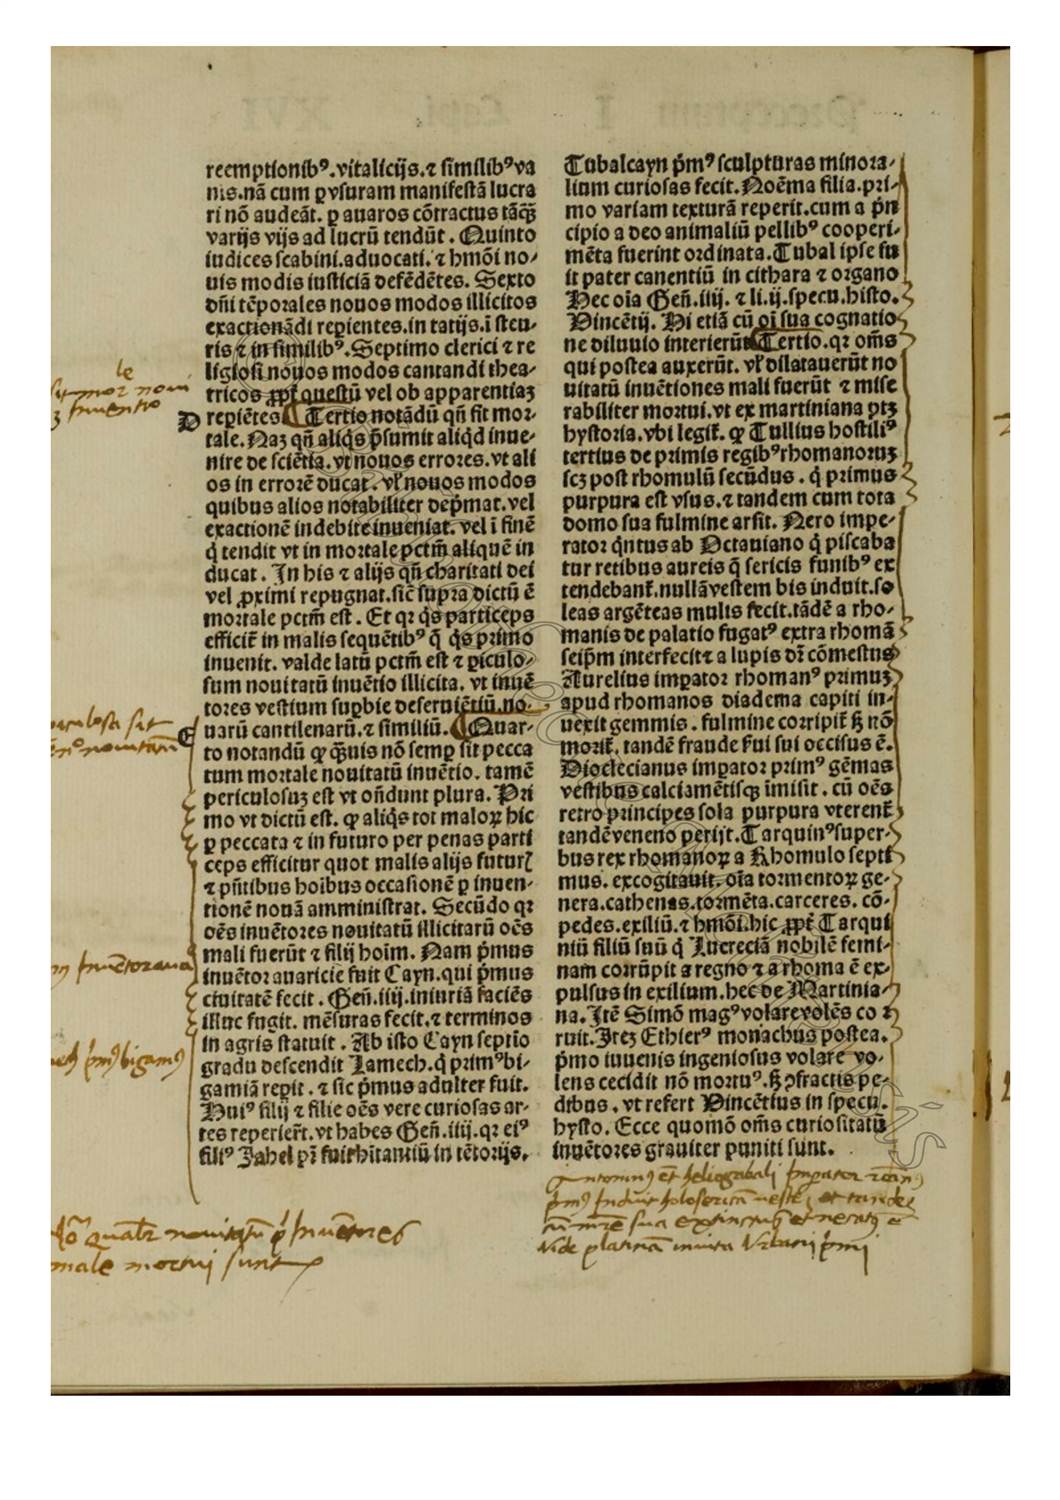 reemptionibꝰ.vitalicijs.⁊ similibꝰ va
nis.nã cum ꝑ vsuram manifestã lucra
ri nõ audeãt. ꝑ auaros cõtractus tãcꝗ̃
varijs vijs ad lucrũ tendũt. Quinto
iudices scabini.aduocati.⁊ hmõi no-
uis modis iusticiã defẽdẽtes. Sexto
dñi tẽporales nouos modos illicitos
exactionãdi reꝑientes.in tatijs.ĩ steu-
ris ⁊ in similibꝰ. Septimo clerici ⁊ re
ligiosi nouos modos cantandi thea-
tricos ꝓpt̃ questũ vel ob apparentiaꝫ
D reꝑiẽtes. Tertio notãdũ qñ fit mor-
tale. Naꝫ qñ aliq̃s p̃sumit aliqd inue-
nire de sciẽtia.vt nouos errores.vt ali
os in errorẽ ducat. vl̃ nouos modos
quibus alios notabiliter dep̃mat.vel
exactionẽ indebite inueniat. vel ĩ finẽ
q̇ tendit vt in mortale pctm̃ aliquẽ in
ducat. In his ⁊ alijs qñ charitati dei
vel ꝓximi repugnat.sic̃ supra dictũ ẽ
mortale pctm̃ est. Et qꝛ q̇s particeps
efficit̃ in malis sequẽtibꝰ q̃ q̇s primo
inuenit. valde latũ pctm̃ est ⁊ ꝑiculo-
sum nouitatũ inuẽtio illicita. vt inuẽ
tores vestium suꝑbie deseruiẽtiũ.no-
E uarũ cantilenarũ.⁊ similiũ. Quar-
to notandũ ꝙ ꝗ̃uis nõ semꝑ sit pecca
tum mortale nouitatũ inuẽtio. tamẽ
periculosuꝫ est vt oñdunt plura. Pri
mo vt dictũ est. ꝙ aliq̇s tot maloꝝ hic
ꝑ peccata ⁊ in futuro per penas parti
ceps efficitur quot malis alijs futuꝝ
⁊ pñtibus hoibus occasionẽ ꝑ inuen-
tionẽ nouã amministrat. Secũdo qꝛ
oẽs inuẽtores nouitatũ illicitarũ oẽs
mali fuerũt ⁊ filij hoim. Nam p̃mus
inuẽtor auaricie fuit Cayn.qui p̃mus
ciuitatẽ fecit. Geñ.iiij.iniuriã faciẽs
illuc fugit. mẽsuras fecit.⁊ terminos
in agris statuit. Ab isto Cayn septĩo
gradu descendit Lamech.q̇ primꝰ bi-
gamiã reꝑit. ⁊ sic p̃mus adulter fuit.
Huiꝰ filij ⁊ filie oẽs vere curiosas ar-
tes reperier̃t.vt habes Geñ.iiij.qꝛ eiꝰ
filiꝰ Jahel pr̃ fuit hĩtantiũ in tẽtorijs.
Tubalcayn p̃mꝰ sculpturas minora-
lium curiosas fecit. Noẽma filia.pri-
mo variam texturã reperit.cum a p̃n
cipio a deo animaliũ pellibꝰ cooperi-
mẽta fuerint ordinata. Tubal ipse fu
it pater canentiũ in cithara ⁊ organo
Hec oĩa Geñ.iiij. ⁊ li.ij.specu.histo.
Vincẽtij. Hi etiã cũ oĩ sua cognatio-
ne diluuio interierũt. Tertio.qꝛ om̃s
qui postea auxerũt. vl̃ dilatauerũt no
uitatũ inuẽtiones mali fuerũt ⁊ mise
rabiliter mortui.vt ex martiniana ptꝫ
hystoria.vbi legit̃. ꝙ Tullius hostiliꝰ
tertius de primis regibꝰ rhomanoruꝫ
scꝫ post rhomulũ secũdus. q̇ primus
purpura est vsus.⁊ tandem cum tota
domo sua fulmine arsit. Nero impe-
rator q̇ntus ab Octauiano q̇ piscaba
tur retibus aureis q̃ sericis funibꝰ ex
tendebant̃.nullã vestem bis induit.so
leas argẽteas mulis fecit.tãdẽ a rho-
manis de palatio fugatꝰ extra rhomã
seip̃m interfecit ⁊ a lupis dr̃ cõmestus
Aurelius imꝑator rhomanꝰ primuꝫ
apud rhomanos diadema capiti in-
uexit gemmis. fulmine corripit̃ sꝫ nõ
morit̃. tandẽ fraude s̃ui sui occisus ẽ.
Dioclecianus imꝑator primꝰ gẽmas
vestibus calciamẽtisqꝫ ĩmisit. cũ oẽs
retro principes sola purpura vterent̃
tandẽ veneno perijt. Tarquinꝰ super-
bus rex rhomanoꝝ a Rhomulo septi
mus. excogitauit.oĩa tormentoꝝ ge-
nera.cathenas.tormẽta.carceres. cõ-
pedes.exiliũ.⁊ hmõi.hic ꝓpt̃ Tarqui
niũ filiũ suũ q̇ Lucreciã nobilẽ femi-
nam corrũpit a regno ⁊ a rhoma ẽ ex-
pulsus in exilium.hec de Martinia-
na. Itẽ Simõ magꝰ volare volẽs co ꝛ
ruit. Iteꝫ Ethierꝰ monachus postea.
p̃mo iuuenis ingeniosus volare vo-
lens cecidit nõ mortuꝰ.sꝫ ꝯfractis pe-
dibus. vt refert Vincẽtius in specu.
hysto. Ecce quomõ om̃s curiositatũ
inuẽtores grauiter puniti sunt.
le
mor noui
Inuentio
periculosa sit
nouitatum
Inuẽtor aua
p̃mꝰ bigamꝰ
nouitatũ Inuẽtores
male mortui sunt
Antoninꝰ et heliogabali Imperator
p̃mꝰ Induit holosericã vestẽ et tandẽ
cũ mr̃e sua extinctus et necatꝰ ẽ
Vide platinã in vita Vrbani primi